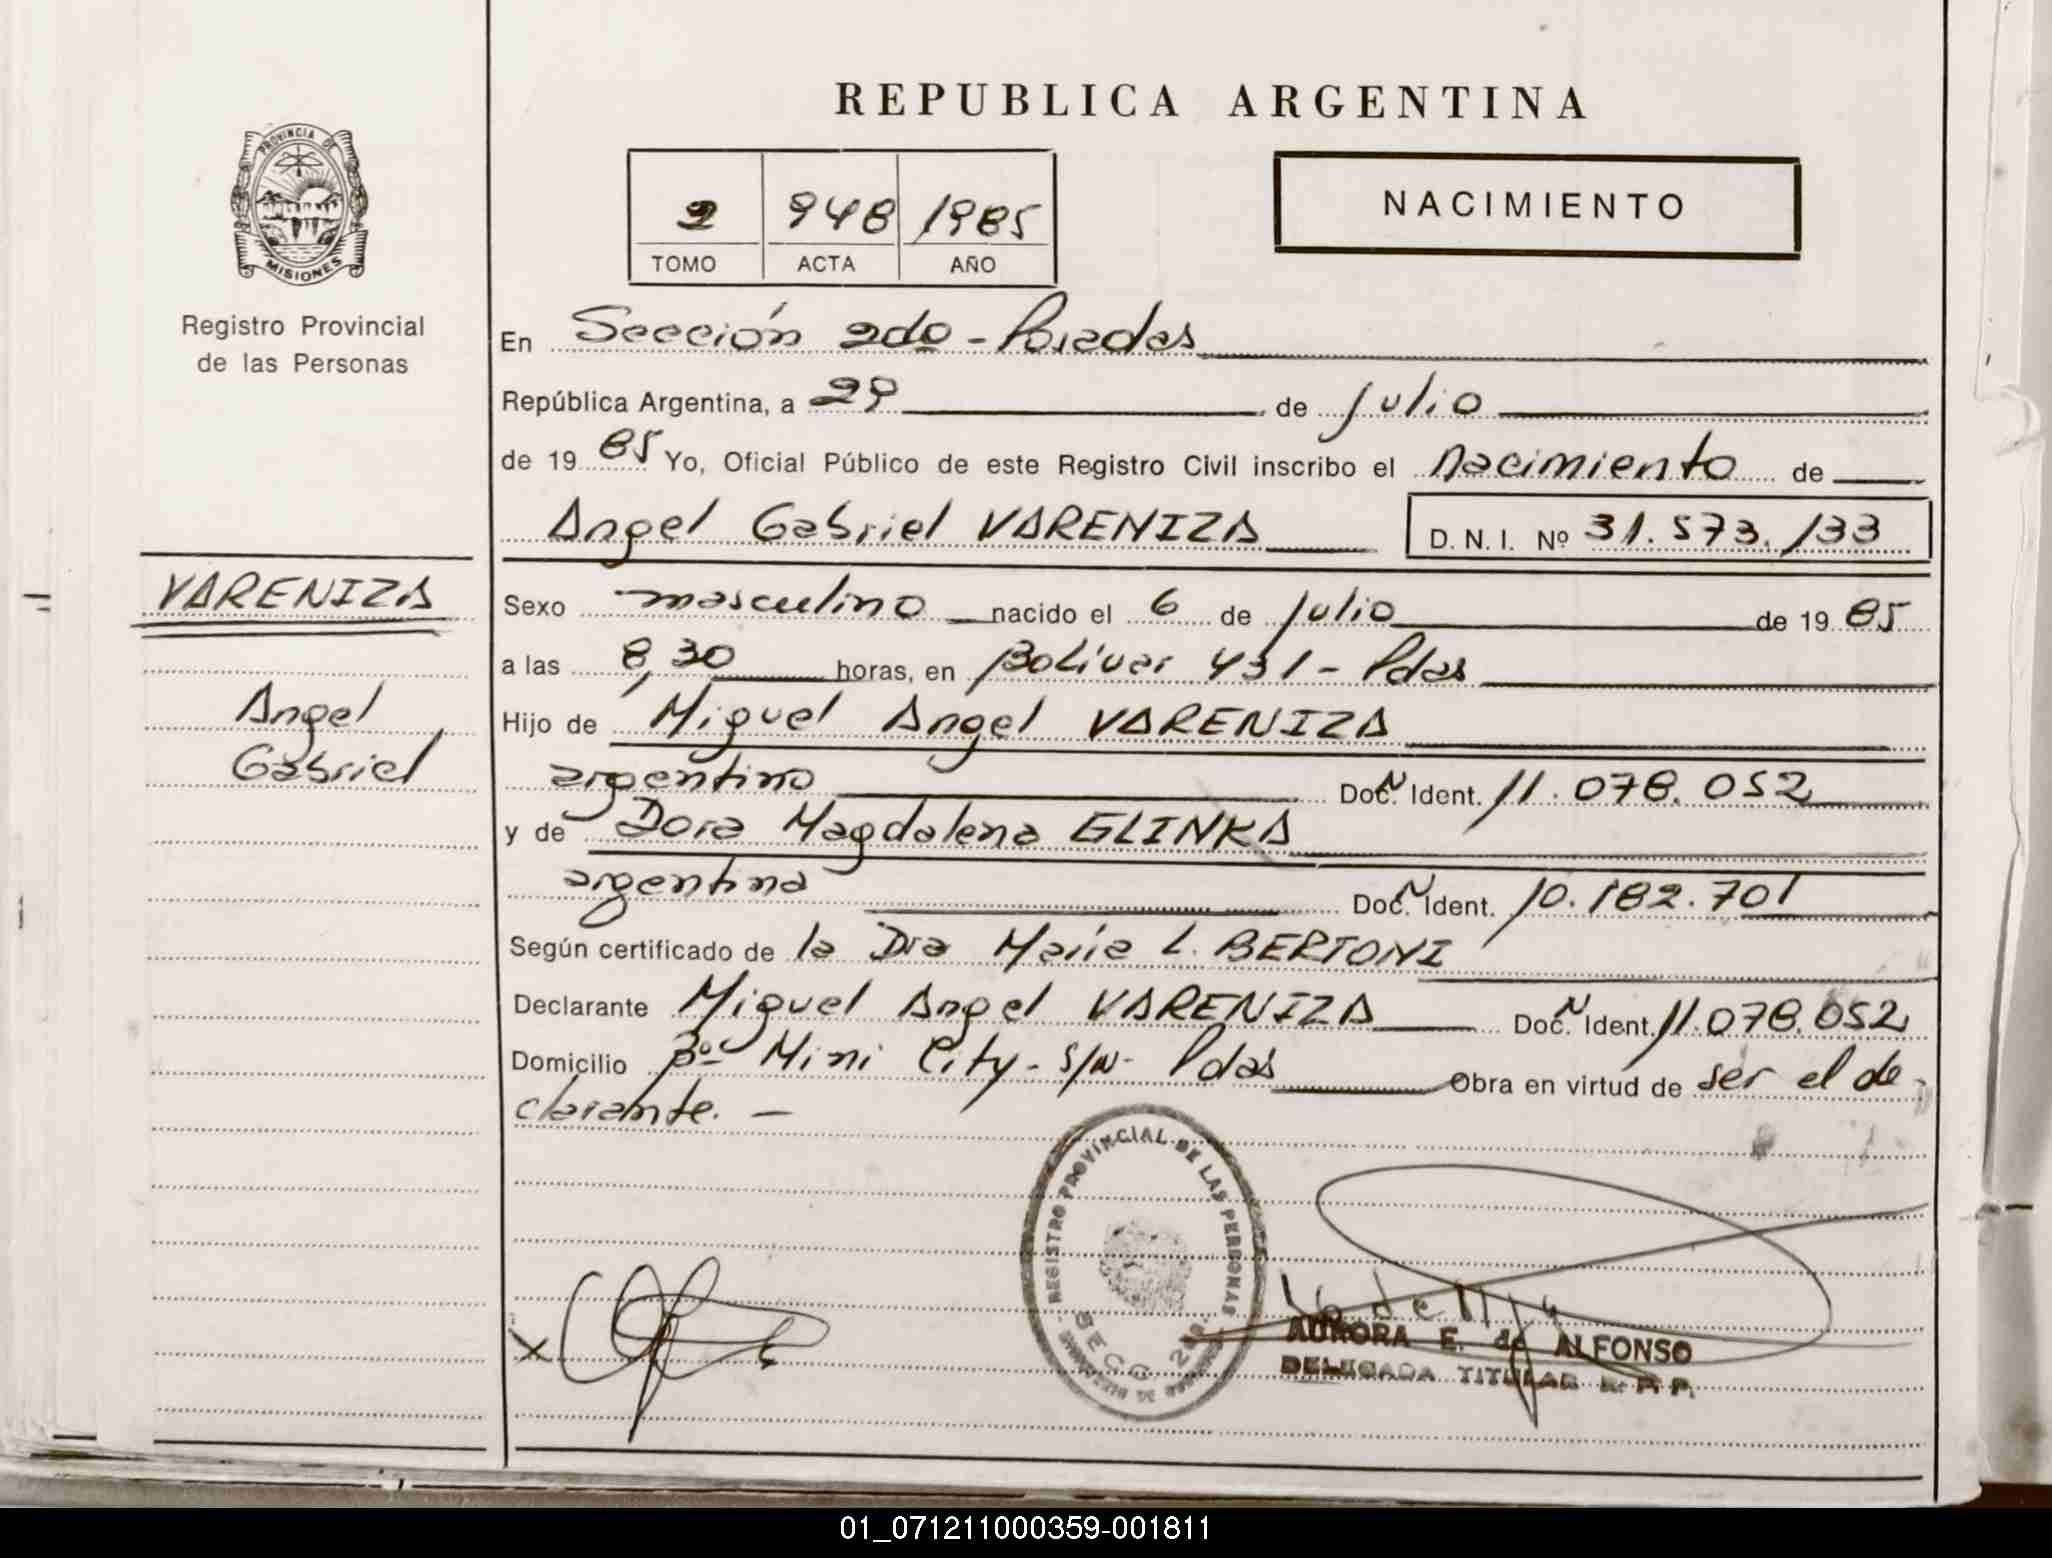 REPUBLICA ARGENTINA
PROVINCIA DE
MISIONES
Registro Provincial
de las Personas
2 948 1985
TOMO ACTA AÑO
NACIMIENTO
En Sección 2da - Posadas
República Argentina, a 29 de julio
de 1985 Yo, Oficial Público de este Registro Civil inscribo el nacimiento de
Angel Gabriel VARENIZA D. N. I. Nº 31.573.133
VARENIZA
Angel
Gabriel
Sexo masculino nacido el 6 de julio de 1985
a las 8,30 horas, en Bolívar 431 - Pdas
Hijo de Miguel Angel VARENIZA
argentino Doc. N Ident. 11.078.052
y de Dora Magdalena GLINKA
argentina Doc. N Ident. 10.182.701
Según certificado de la Dra María L. BERTONI
Declarante Miguel Angel VARENIZA Doc. N Ident. 11.078.052
Domicilio Bº Mini City - S/N - Pdas Obra en virtud de ser el de-
clarante. —
REGISTRO PROVINCIAL DE LAS PERSONAS
SECC.
X
AURORA E. de ALFONSO
DELEGADA TITULAR R. P. P.
01_071211000359-001811